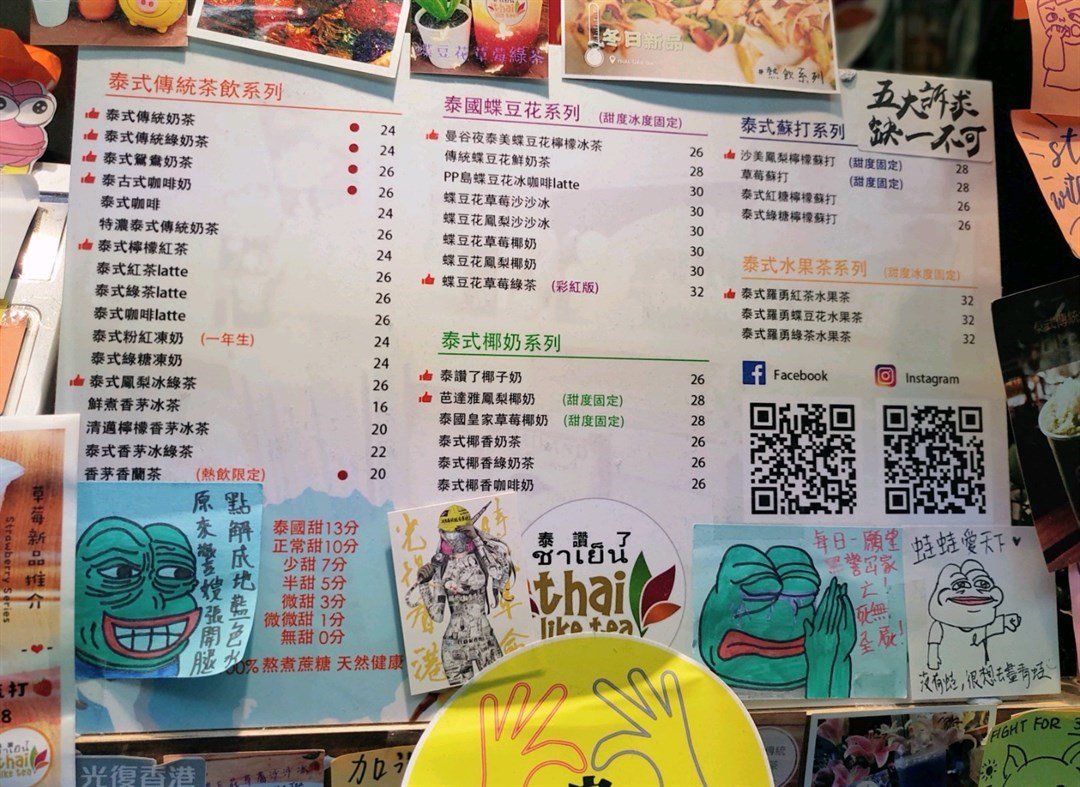 thai
like tea
蝶豆花草莓綠茶
冬日新品
#熱飲系列
泰式傳統茶飲系列
泰式傳統奶茶 24
泰式傳統綠奶茶 24
泰式鴛鴦奶茶 26
泰古式咖啡奶 26
泰式咖啡 24
特濃泰式傳統奶茶 26
泰式檸檬紅茶 24
泰式紅茶latte 26
泰式綠茶latte 26
泰式咖啡latte 26
泰式粉紅凍奶 (一年生) 24
泰式綠糖凍奶 24
泰式鳳梨冰綠茶 26
鮮煮香茅冰茶 16
清邁檸檬香茅冰茶 20
泰式香茅冰綠茶 22
香茅香蘭茶 (熱飲限定) 20
泰國蝶豆花系列 (甜度冰度固定)
曼谷夜泰美蝶豆花檸檬冰茶 26
傳統蝶豆花鮮奶茶 28
PP島蝶豆花冰咖啡latte 30
蝶豆花草莓沙沙冰 30
蝶豆花鳳梨沙沙冰 30
蝶豆花草莓椰奶 30
蝶豆花鳳梨椰奶 30
蝶豆花草莓綠茶 (彩紅版) 32
泰式椰奶系列
泰讚了椰子奶 26
芭達雅鳳梨椰奶 (甜度固定) 28
泰國皇家草莓椰奶 (甜度固定) 28
泰式椰香奶茶 26
泰式椰香綠奶茶 26
泰式椰香咖啡奶 26
五大訴求
缺一不可
泰式蘇打系列
沙美鳳梨檸檬蘇打 (甜度固定) 28
草莓蘇打 (甜度固定) 28
泰式紅糖檸檬蘇打 26
泰式綠糖檸檬蘇打 26
泰式水果茶系列 (甜度冰度固定)
泰式羅勇紅茶水果茶 32
泰式羅勇蝶豆花水果茶 32
泰式羅勇綠茶水果茶 32
Facebook
Instagram
草莓新品推介
Strawberry Series
點解底地藍色水
原來灣臺嫂張開腿
泰國甜13分
正常甜10分
少甜 7分
半甜 5分
微甜 3分
微微甜 1分
無甜 0分
% 熬煮蔗糖 天然健康
光復香港
時代革命
泰讚了
ชาเย็น
thai
like tea
每日一願望
黑警冚家
亡!
死無
全屍!
蛙蛙愛天下
沒有蛙,很想去靈青蛙
打
8
thai
like tea
光復香港
FIGHT FOR